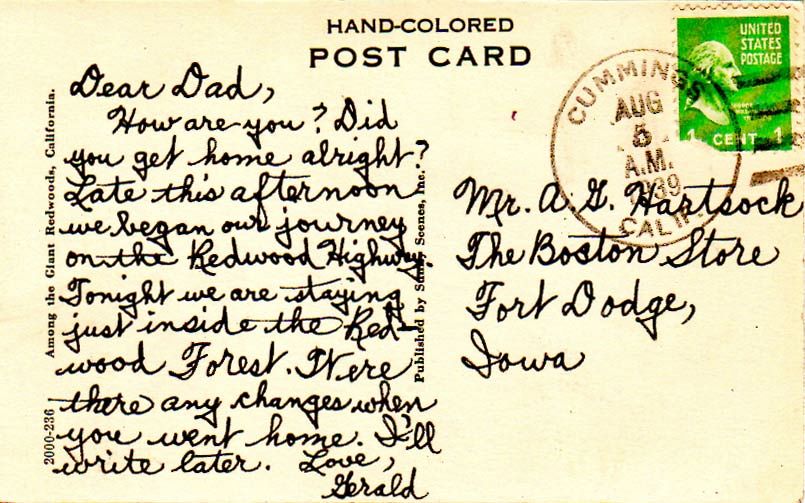 HAND-COLORED
POST CARD
UNITED
STATES
POSTAGE
1 CENT 1
CUMMINGS
AUG
5
A.M.
1939
CALIF.
Dear Dad,
How are you? Did
you get home alright?
Late this afternoon
we began our journey
on the Redwood Highway.
Tonight we are staying
just inside the Red-
wood Forest. Were
there any changes when
you went home. I'll
write later. Love,
Gerald
Mr. A. G. Hartsock
The Boston Store
Fort Dodge,
Iowa
Among the Giant Redwoods, California.
2000-236
Published by Scenes, Inc.